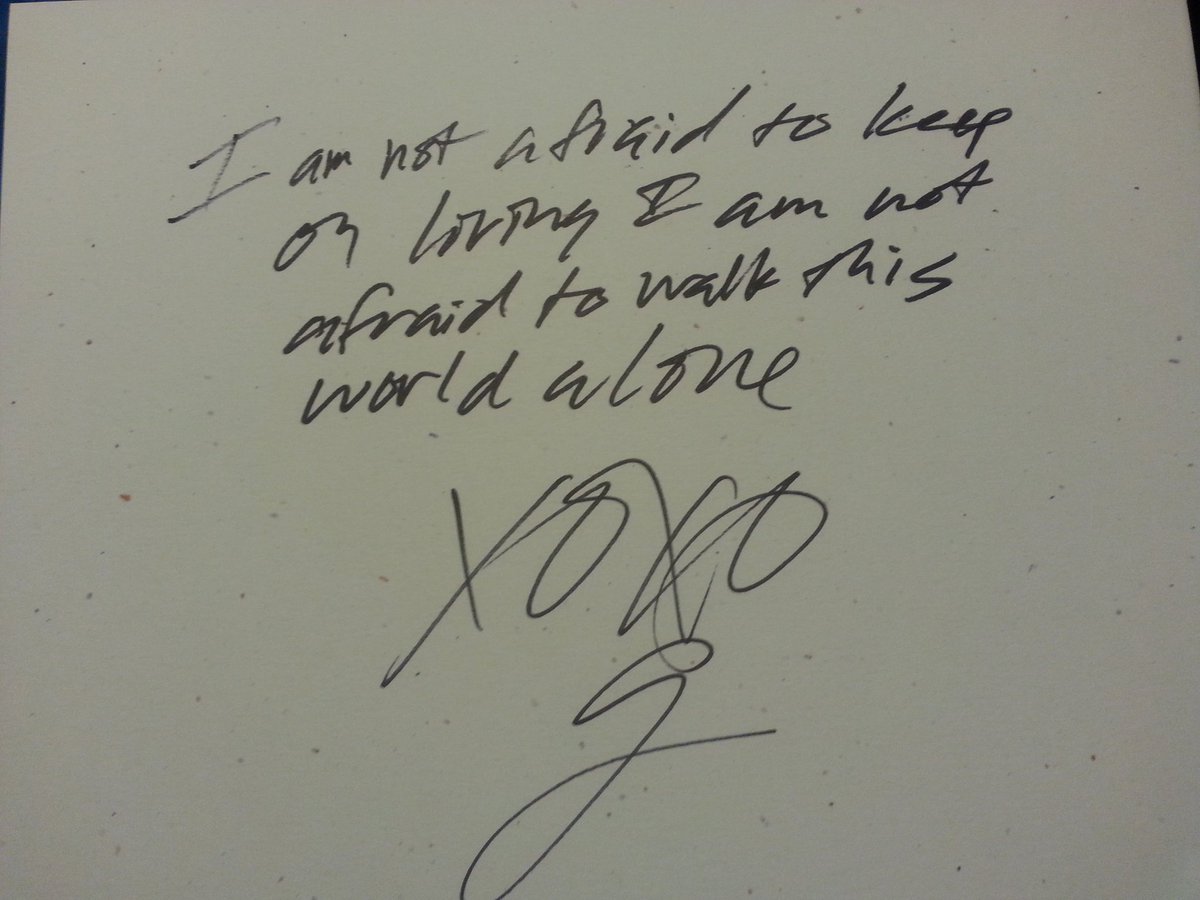 I am not afraid to keep
on living I am not
afraid to walk this
world alone
xoxo
g